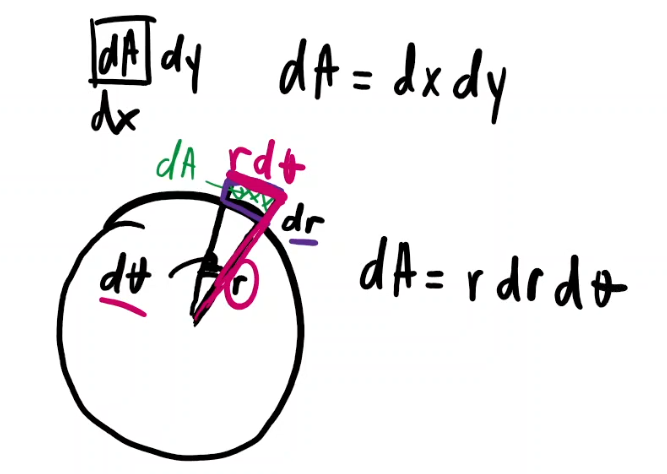 dA dy
dx
dA = dx dy
dA
r dθ
dr
dθ
r
dA = r dr dθ